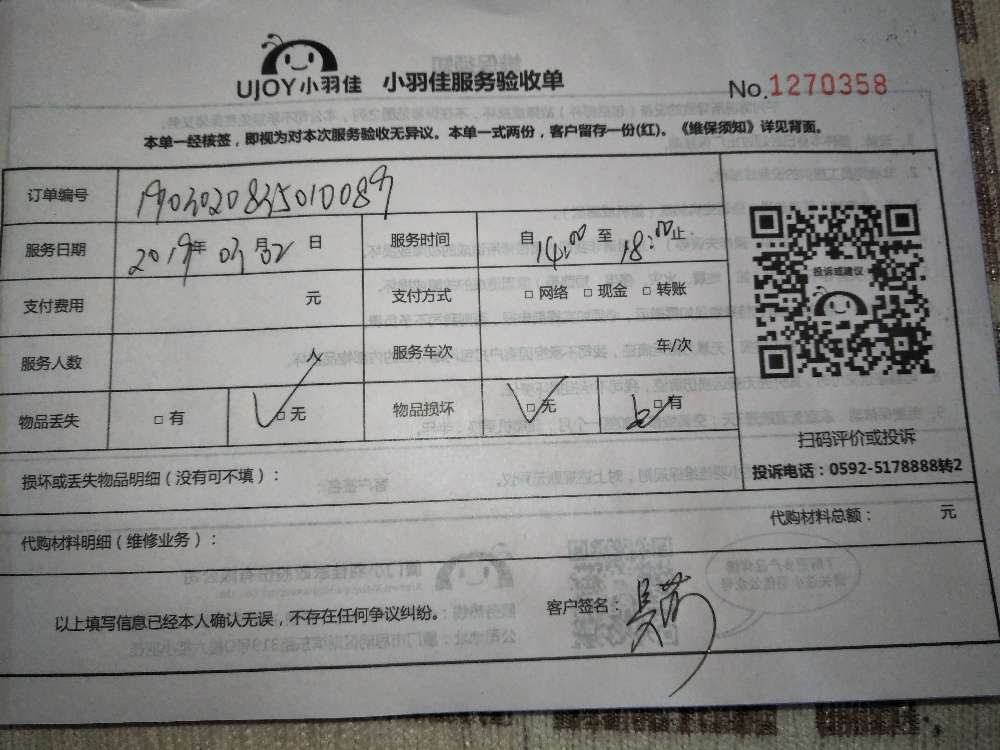 UJOY小羽佳 小羽佳服务验收单
No.1270358
本单一经核签，即视为对本次服务验收无异议。本单一式两份，客户留存一份(红)。《维保须知》详见背面。
订单编号
服务日期 2019年 03月 02日 服务时间 自14:00至18:00止
支付费用 元 支付方式 □ 网络 □ 现金 □ 转账
服务人数 人 服务车次 车/次
物品丢失 □ 有 □ 无 物品损坏 □ 无 □ 有
投诉或建议
扫码评价或投诉
投诉电话：0592-5178888转2
损坏或丢失物品明细（没有可不填）：
代购材料明细（维修业务）： 代购材料总额： 元
以上填写信息已经本人确认无误，不存在任何争议纠纷。 客户签名：